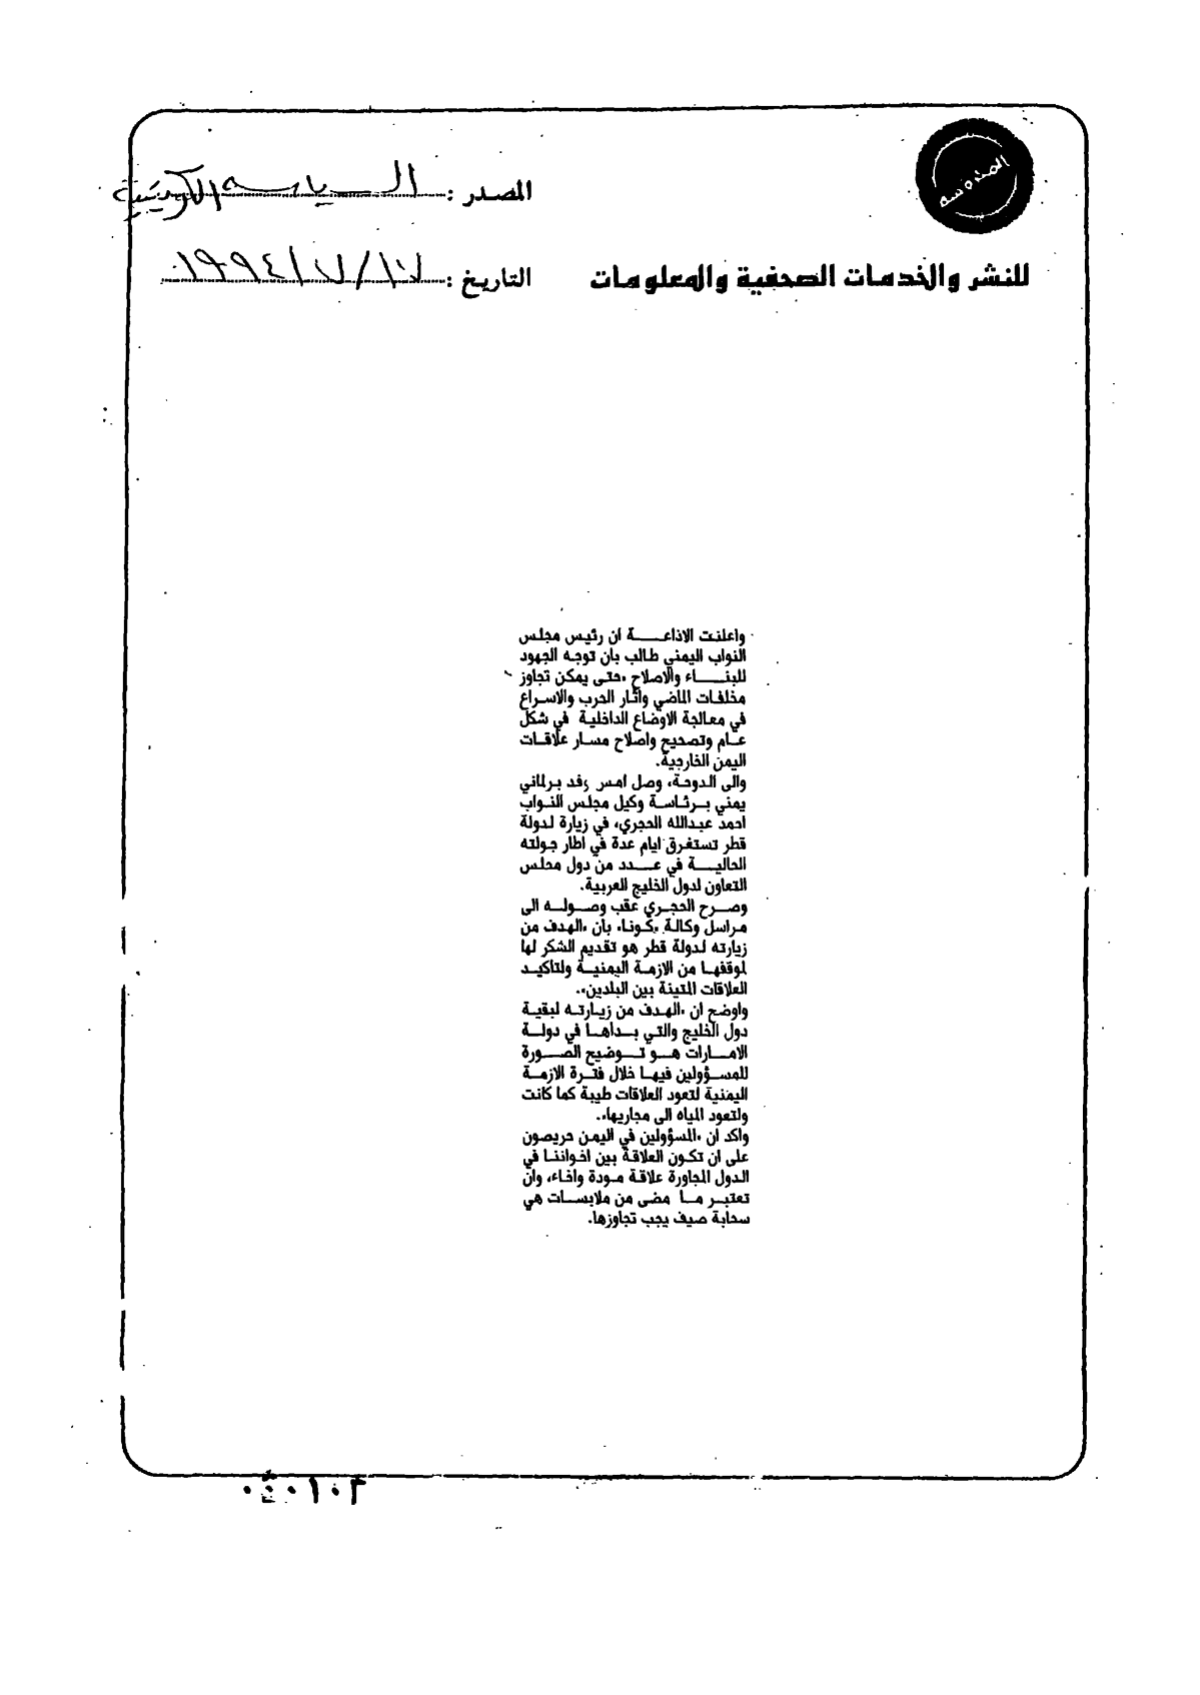 المصدر : السياسة الكويتية
للنشر والخدمات الصحفية والمعلومات
التاريخ : ١٧ / ٧ / ١٩٩٤
واعلنت الاذاعــــة ان رئيس مجلس
النواب اليمني طالب بان توجه الجهود
للبنـــاء والاصلاح «حتى يمكن تجاوز
مخلفات الماضي وآثار الحرب والاسراع
في معالجة الاوضاع الداخلية في شكل
عـام وتصحيح واصلاح مسار علاقات
اليمن الخارجية.
والى الدوحة، وصل امس وفد برلماني
يمني بـرئـاسـة وكيل مجلس النـواب
احمد عبدالله الحجري، في زيارة لدولة
قطر تستغرق ايام عدة في اطار جولته
الحاليـــة في عـــدد من دول مجلس
التعاون لدول الخليج العربية.
وصـــرح الحجـري عقب وصـولـه الى
مراسل وكالة «كونا» بان «الهدف من
زيارته لدولة قطر هو تقديم الشكر لها
لموقفهـا من الازمـة اليمنيـة ولتاكيـد
العلاقات المتينة بين البلدين».
واوضح ان «الهـدف من زيـارتـه لبقيـة
دول الخليج والتي بـداهـا في دولـة
الامـــارات هـو تـوضيح الصـورة
للمسـؤولين فيهـا خلال فتـرة الازمـة
اليمنية لتعود العلاقات طيبة كما كانت
ولتعود المياه الى مجاريها».
واكد ان «المسؤولين في اليمن حريصون
على ان تكون العلاقة بين اخواننـا في
الدول المجاورة علاقة مـودة واخاء، وان
تعتبـر مـا مضى من ملابسـات هي
سحابة صيف يجب تجاوزها.